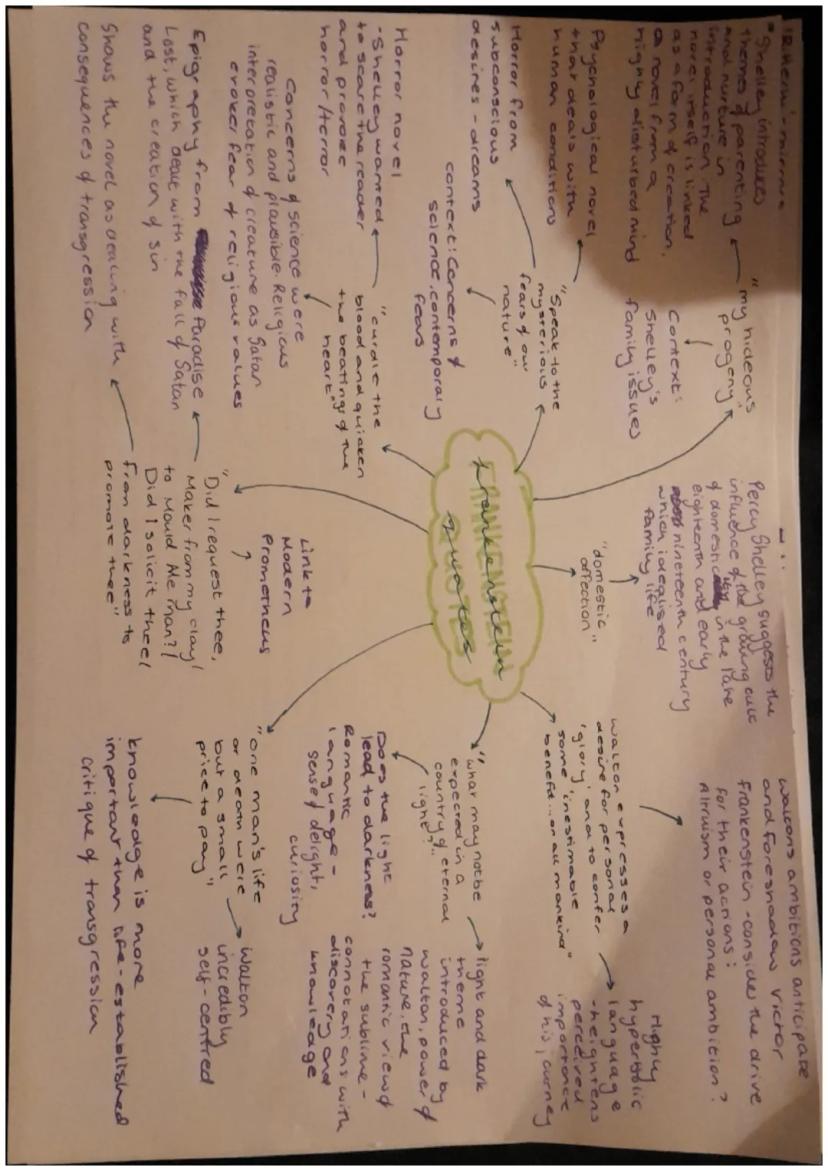 Shelley introduces
themes of parenting
and nurture in
introduction. The
novel itself is linked
as a form of creation,
a novel from a
highly disturbed mind
"my hideous
progeny"
Context:
Shelley's
family issues
Psychological novel
that deals with
human conditions
"Speak to the
mysterious
fears of our
nature"
Horror from
subconscious
desires - dreams
context: Concerns of
science, contemporary
fears
Horror novel
-Shelley wanted
to scare the reader
and provoke
horror/terror
"curdle the
blood and quicken
the beating of the
heart"
Concerns of science were
realistic and plausible. Religious
interpretation of creature as Satan
evokes fear of religious values
Epigraphy from Paradise
Lost, which dealt with the fall of Satan
and the creation of sin
Shows the novel as dealing with
consequences of transgression
"Did I request thee,
Maker from my clay/
to mould Me man?/
Did I solicit thee/
from darkness to
promote thee"
Link to
Modern
Prometheus
FRANKENSTEIN
QUOTES
Frankenstein
quotes
"domestic
affection"
Percy Shelley suggests the
influence of the growing cult
of domestic in the late
eighteenth and early
nineteenth century
which idealised
family life
Walton expresses a
desire for personal
'glory' and to confer
some 'inestimable
benefit...on all mankind"
Waltons ambitions anticipate
and foreshadow Victor
Frankenstein - consider the drive
for their actions:
Altruism or personal ambition?
Highly
hyperbolic
language
-heightens
perceived
importance
of his journey
"what may not be
expected in a
country of eternal
light?"
Does the light
lead to darkness?
Romantic
language -
sense of delight,
curiosity
light and dark
theme
introduced by
Walton, power of
nature, the
romantic view of
the sublime -
connotations with
discovery and
knowledge
"one man's life
or death were
but a small
price to pay"
Walton
incredibly
self-centred
knowledge is more
important than life - established
critique of transgression